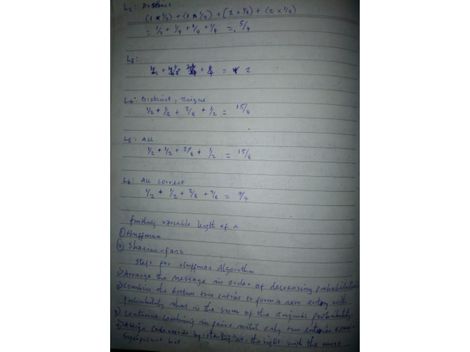 L2: Distinct
(1 x 1/2) + (1 x 1/4) + (2 x 1/8) + (2 x 1/8)
= 1/2 + 1/4 + 1/4 + 1/4 = 5/4
L3:
= 2
L4: Distinct, Unique
1/2 + 1/2 + 3/8 + 1/2 = 15/8
L5: All
1/2 + 1/2 + 3/8 + 1/2 = 15/8
L6: All correct
1/2 + 1/2 + 3/8 + 3/8 = 7/4
finding variable length of n
① Huffman
② Shannon-fano
Steps for Huffman Algorithm
① Arrange the message in order of decreasing probabilities
② Combine the bottom two entries to form a new entry with
Probability that is the sum of the original probability
③ Continue combining in pairs until only one entry
④ Assign code words by starting at the right with the most
Significant bit